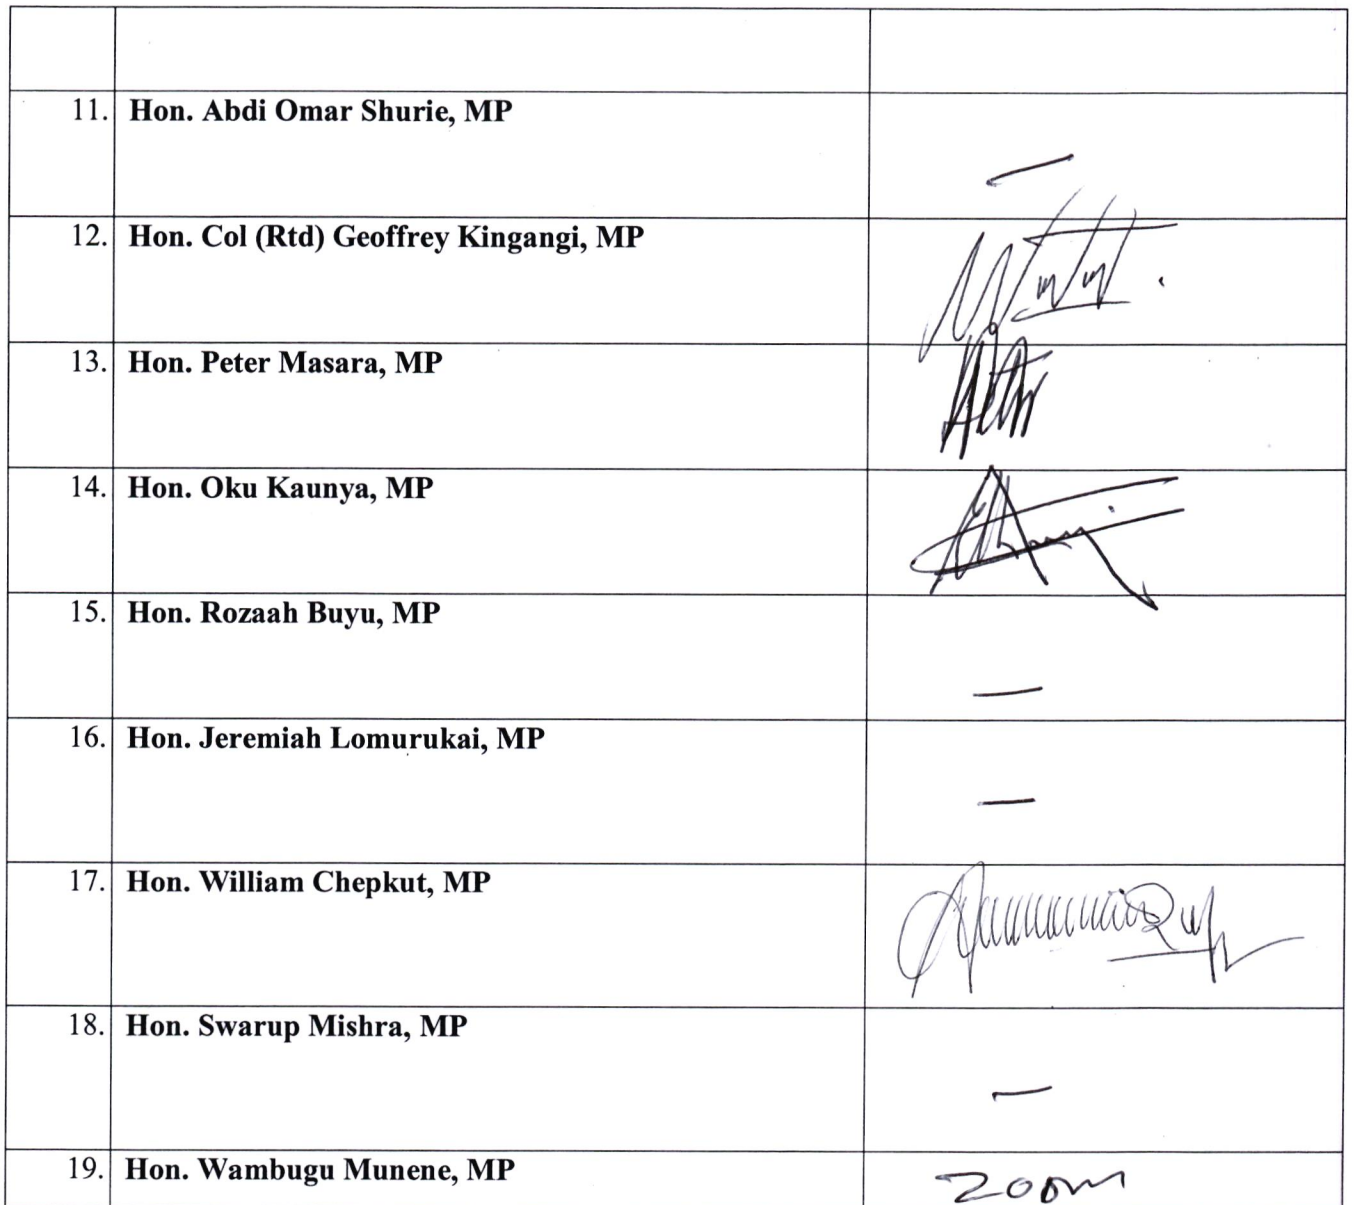 11. Hon. Abdi Omar Shurie, MP —
12. Hon. Col (Rtd) Geoffrey Kingangi, MP
13. Hon. Peter Masara, MP
14. Hon. Oku Kaunya, MP
15. Hon. Rozaah Buyu, MP —
16. Hon. Jeremiah Lomurukai, MP —
17. Hon. William Chepkut, MP
18. Hon. Swarup Mishra, MP —
19. Hon. Wambugu Munene, MP zoom